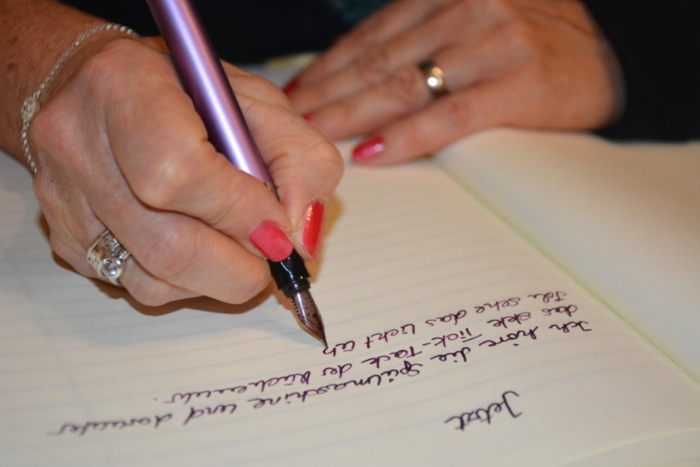 Jetzt
Ich höre die Spülmaschine und darunter
das stete Tick-Tack der Küchenuhr.
Ich sehe das Licht